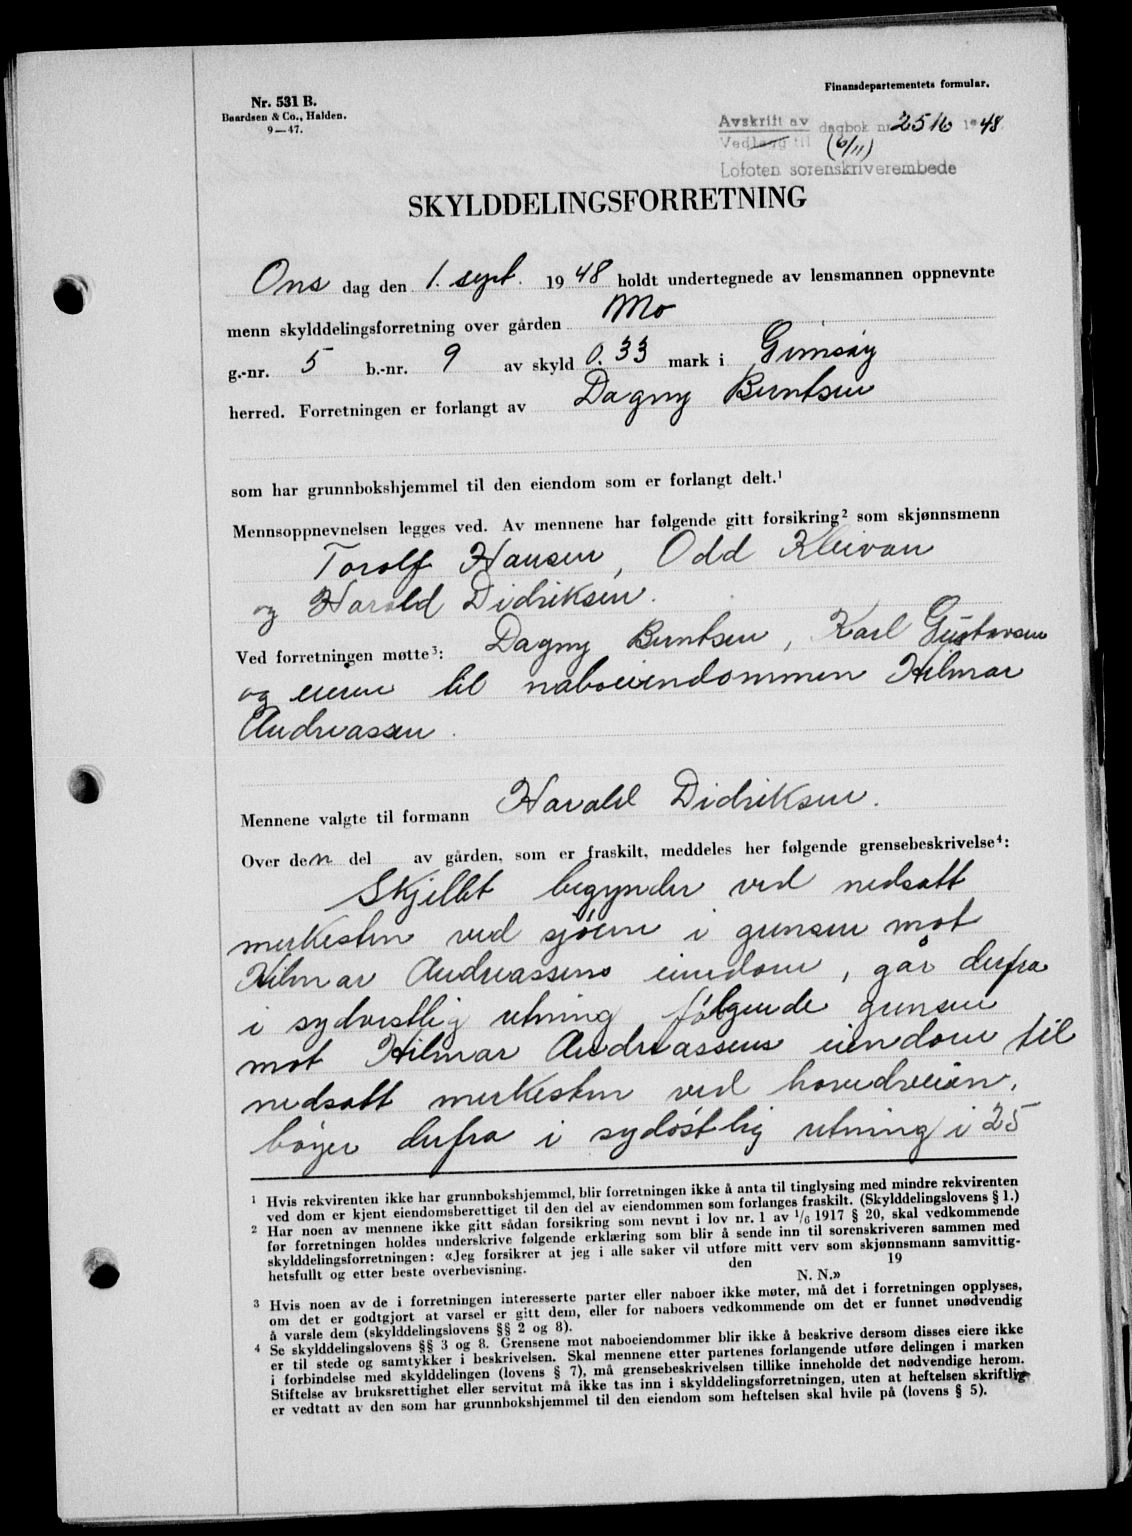 Nr. 531 B.
Baardsen & Co., Halden.
9—47.
Finansdepartementets formular.
Avskrift av dagbok nr. 2516 1948
Vedlegg til (6/11)
Lofoten sorenskriverembede
SKYLDDELINGSFORRETNING
Ons dag den 1. sept. 1948 holdt undertegnede av lensmannen oppnevnte
menn skylddelingsforretning over gården Mo
g.-nr. 5 b.-nr. 9 av skyld 0.33 mark i Gimsøy
herred. Forretningen er forlangt av Dagny Berntsen
som har grunnbokshjemmel til den eiendom som er forlangt delt.¹
Mennsoppnevnelsen legges ved. Av mennene har følgende gitt forsikring² som skjønnsmenn
Torolf Hansen, Odd Kleivan
og Harald Didriksen.
Ved forretningen møtte³: Dagny Berntsen, Karl Gustavsen
og eieren til naboeiendommen Hilmar
Andreassen.
Mennene valgte til formann Harald Didriksen.
Over den del av gården, som er fraskilt, meddeles her følgende grensebeskrivelse⁴:
Skjellet begynder ved nedsatt
merkesten ved sjøen i grensen mot
Hilmar Andreassens eiendom, går derfra
i sydvestlig retning følgende grensen
mot Hilmar Andreassens eiendom til
nedsatt merkesten ved hovedveien,
bøyer derfra i sydøstlig retning i 25
¹ Hvis rekvirenten ikke har grunnbokshjemmel, blir forretningen ikke å anta til tinglysing med mindre rekvirenten
ved dom er kjent eiendomsberettiget til den del av eiendommen som forlanges fraskilt. (Skylddelingslovens § 1.)
² Har noen av mennene ikke gitt sådan forsikring som nevnt i lov nr. 1 av 1/6 1917 § 20, skal vedkommende
før forretningen holdes underskrive følgende erklæring som blir å sende inn til sorenskriveren sammen med
skylddelingsforretningen: «Jeg forsikrer at jeg i alle saker vil utføre mitt verv som skjønnsmann samvittig-
hetsfullt og etter beste overbevisning. den 19
N. N.»
³ Hvis noen av de i forretningen interesserte parter eller naboer ikke møter, må det i forretningen opplyses,
om det er godtgjort at varsel er gitt dem, eller for naboers vedkommende om det er funnet unødvendig
å varsle dem (skylddelingslovens §§ 2 og 8).
⁴ Se skylddelingslovens §§ 3 og 8. Grensene mot naboeiendommer blir ikke å beskrive dersom disses eiere ikke
er til stede og samtykker i beskrivelsen. Skal mennene etter partenes forlangende utføre delingen i marken
i forbindelse med skylddelingen (lovens § 7), må grensebeskrivelsen tillike inneholde det nødvendige herom.
Stiftelse av bruksrettighet eller servitut må ikke tas inn i skylddelingsforretningen, uten at heftelsen skriftlig
er vedtatt av den som har grunnbokshjemmel til den eiendom som heftelsen skal hvile på (lovens § 5).